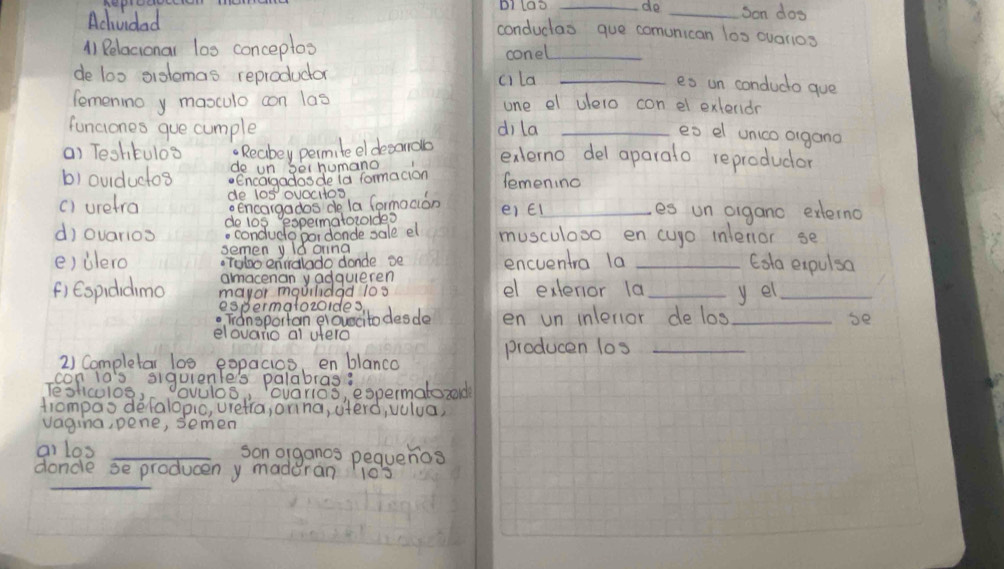 Actividad
1) Relacionar los conceptos
de los sistemas reproductor
femenino y masculo con las
funciones que cumple
a) Testikulos
b) oviductos
c) uretra
d) ovarios
e) Utero
f) Espididimo
• Recibe y permite el desarrollo
de un ser humano
• Encargados de la formación
de los ovocitos
• encargados de la formación
de los espermatozoides
• conducto por donde sale el
semen y la orina
• Tubo enrrallado donde se
almacenan y adquieren
mayor movilidad los
espermatozoides
• Transportan el ovocito desde
el ovario al utero
2) Completar los espacios en blanco
con las siguientes palabras:
Testiculos, ovulos, ovarios, espermatozoid
trompas de falopio, uretra, orina, utero, vulva,
vagina, pene, semen
a) los ______ son organos pequeños
donde se producen y maduran los
______
b) las ______ de ______ son dos
conductos que comunican los ovarios
con el ______
c) la ______ es un conducto que
une el utero con el exterior
d) la ______ es el unico organo
externo del aparato reproductor
femenino
e) El ______ es un organo externo
musculoso en cuyo interior se
encuentra la ______ Esta expulsa
el exterior la ______ y el ______
en un interior de los ______ se
producen los ______